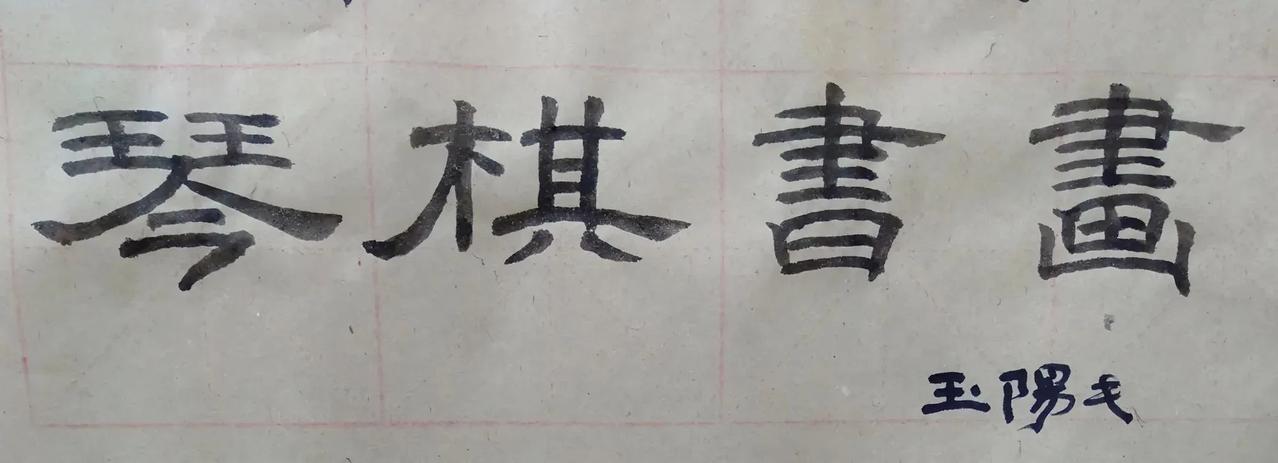 琴棋書畫
玉陽